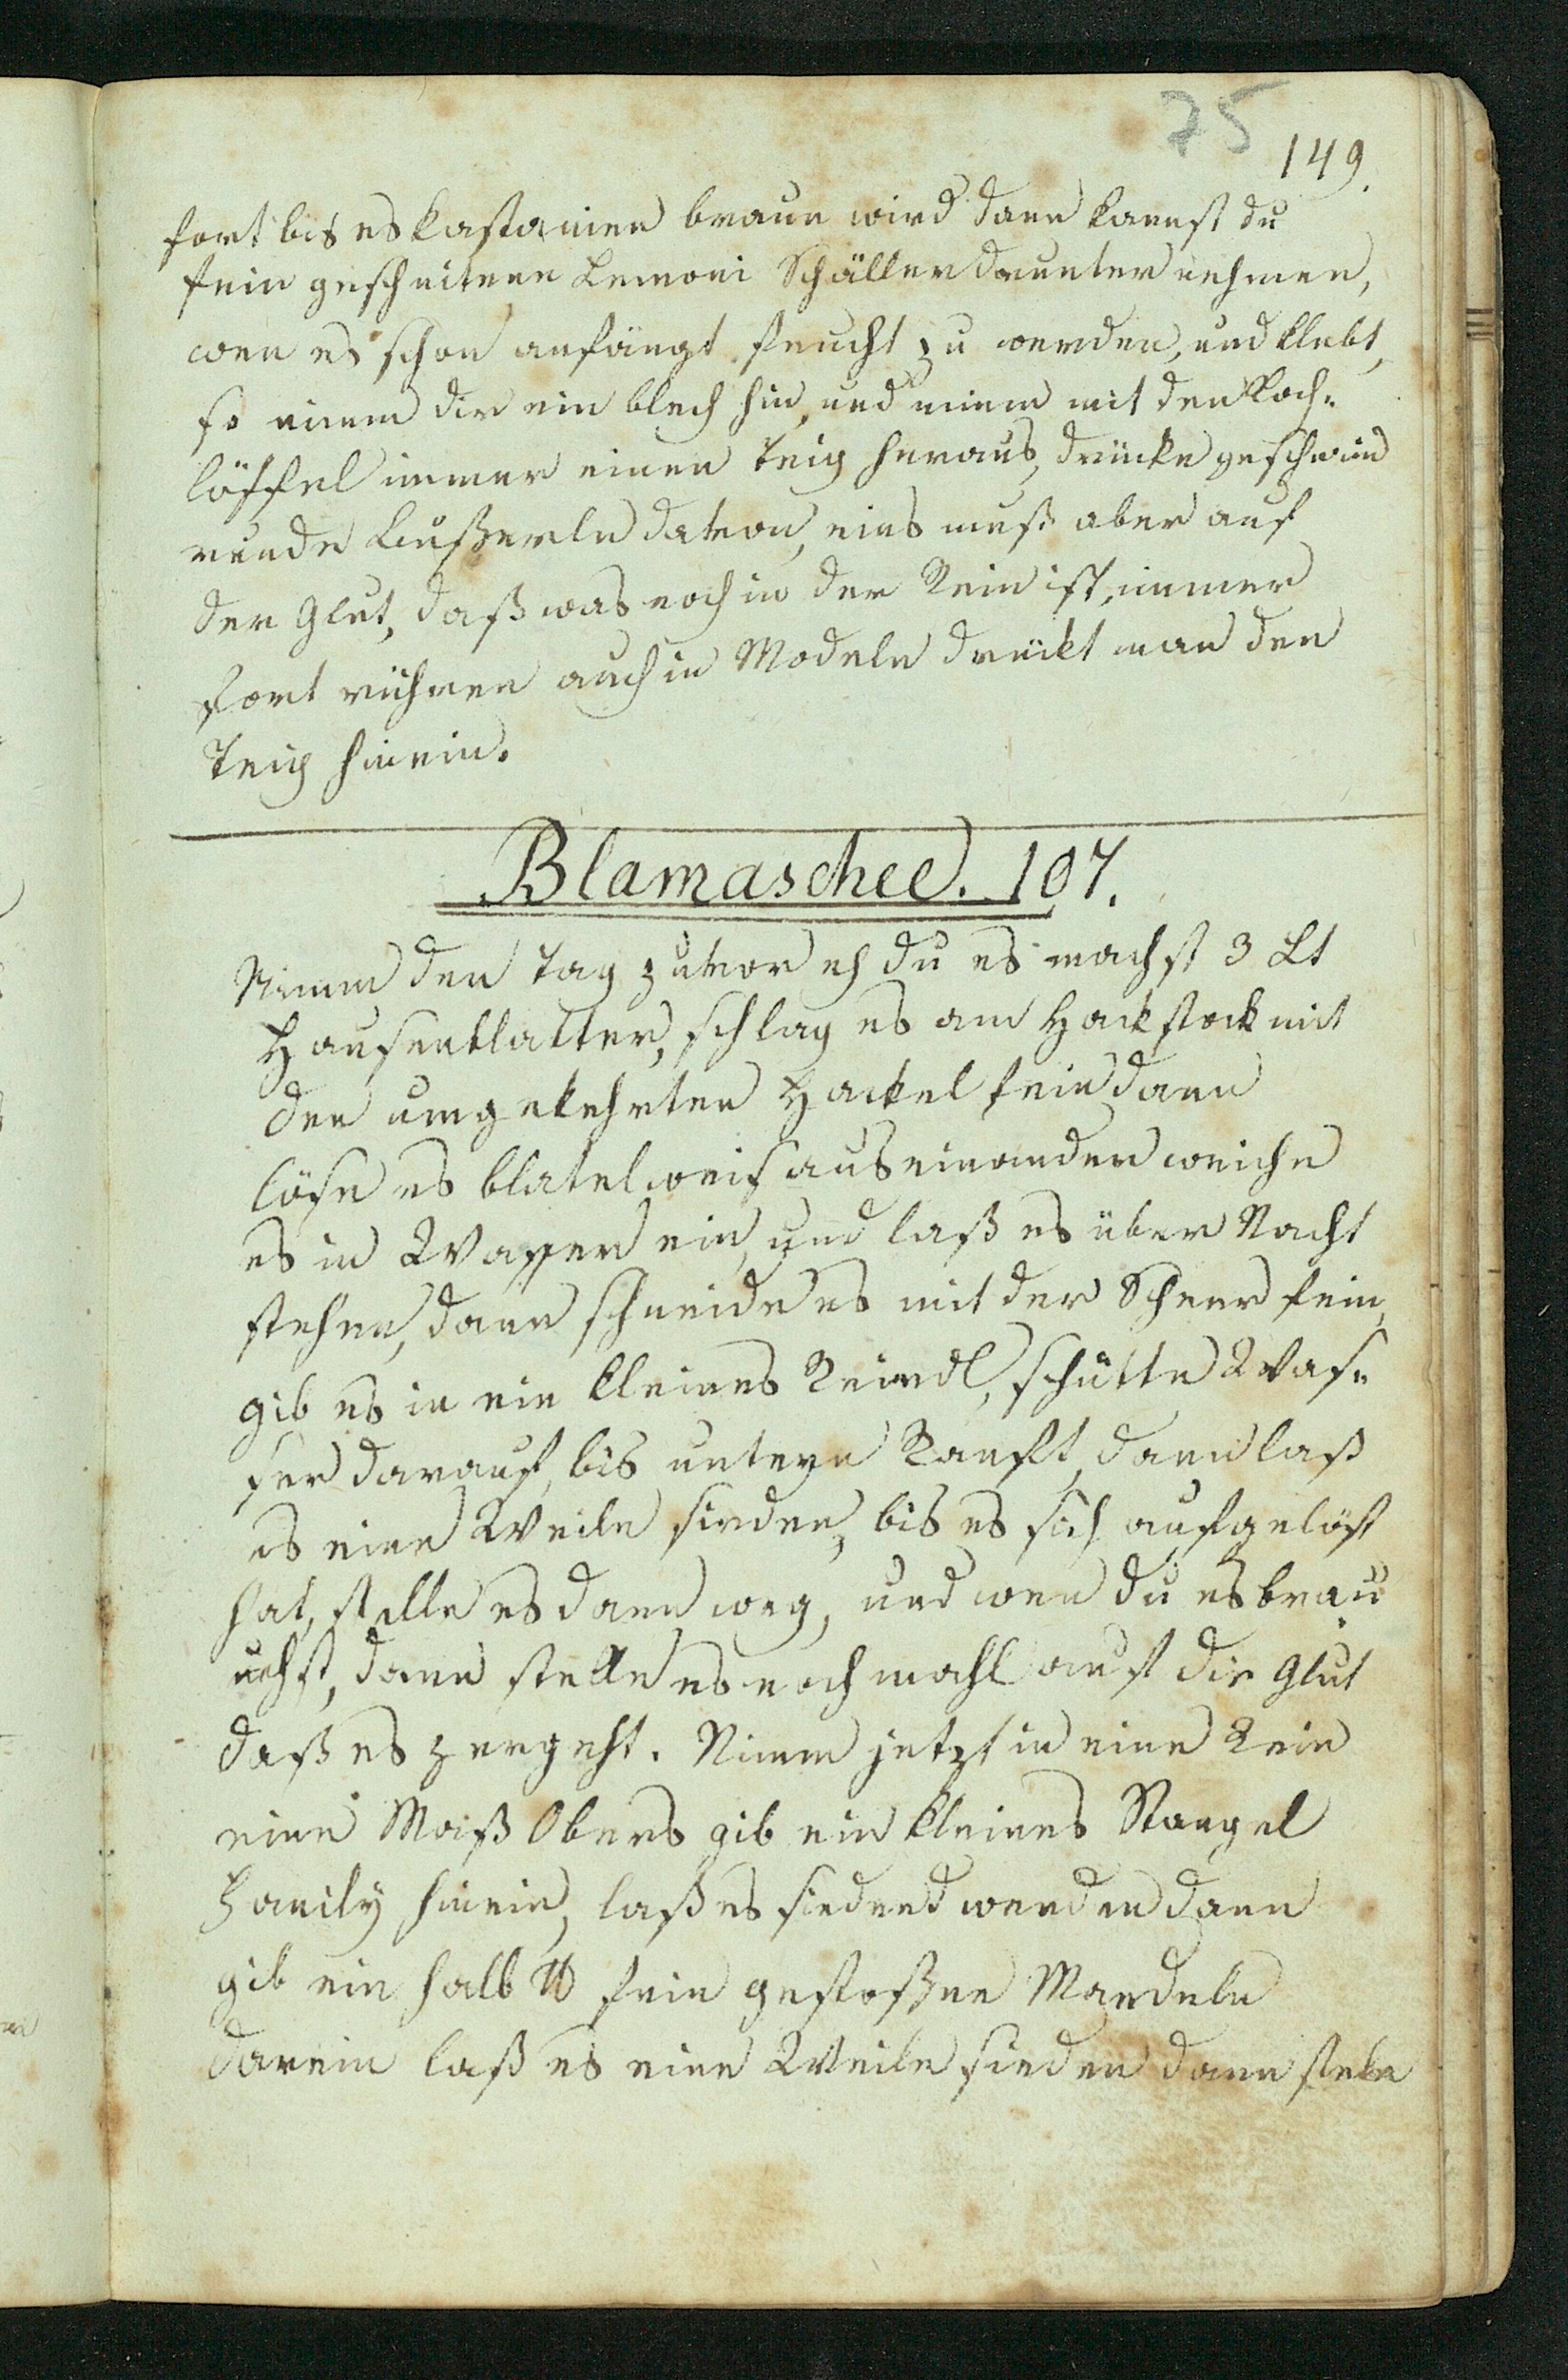 75
149.
fort bis es kastainen braun wird dann kannst du
fein geschnitene Lemoni Schäller drunter nehmen,
wen es schon anfängt feucht zu werden, und klebt,
so nimm dir ein blech hin, und nimm mit den Koch-
löffel immer einen Teig heraus, drücke geschwind
runde Bußerln davon, eins muß aber auf
der Glut, daß was noch in der Rein ist, immer
fort rühren auch in Modeln drückt man den
Teig hinein.
Blamaschee. 107.
Nimm den Tag zuvor eh du es machst 3 Lt
Hausenblatter, schlag es am Hackstock mit
den umgekehrten Hackel fein dann
löse es blatelweis auseinander weiche
es in Wasser ein, und laß es über Nacht
stehen, dann schneide es mit der Scheer fein,
gib es in ein kleines Reindl, schütte Was-
ser darauf, bis untern Ranft, dann laß
es eine Weile sieden, bis es sich aufgelöst
hat, stelle es dann weg, und wen du es brau
uchst, dann stelle es noch mahl auf die Glut
daß es zergeht. Nimm jetzt in eine Rein
eine Maß Obers gib ein kleines Stangel
Fanily hinein, laß es siedend werden dann
gib ein halb ℔ fein gestoßene Mandeln
darein laß es eine Weile sieden dann stele